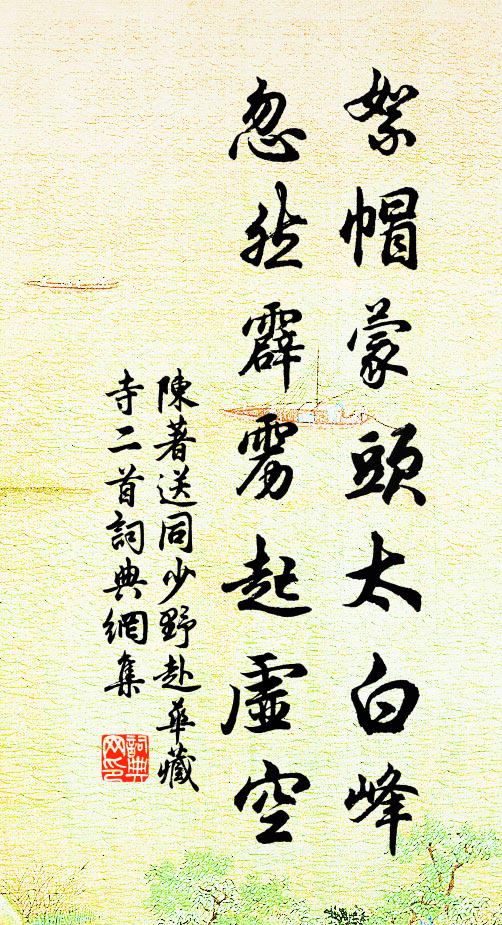 絮帽蒙頭太白峰
忽然霹雳起虛空
陳著送同少野赴華藏
寺二首詞典網集
詞典
网印